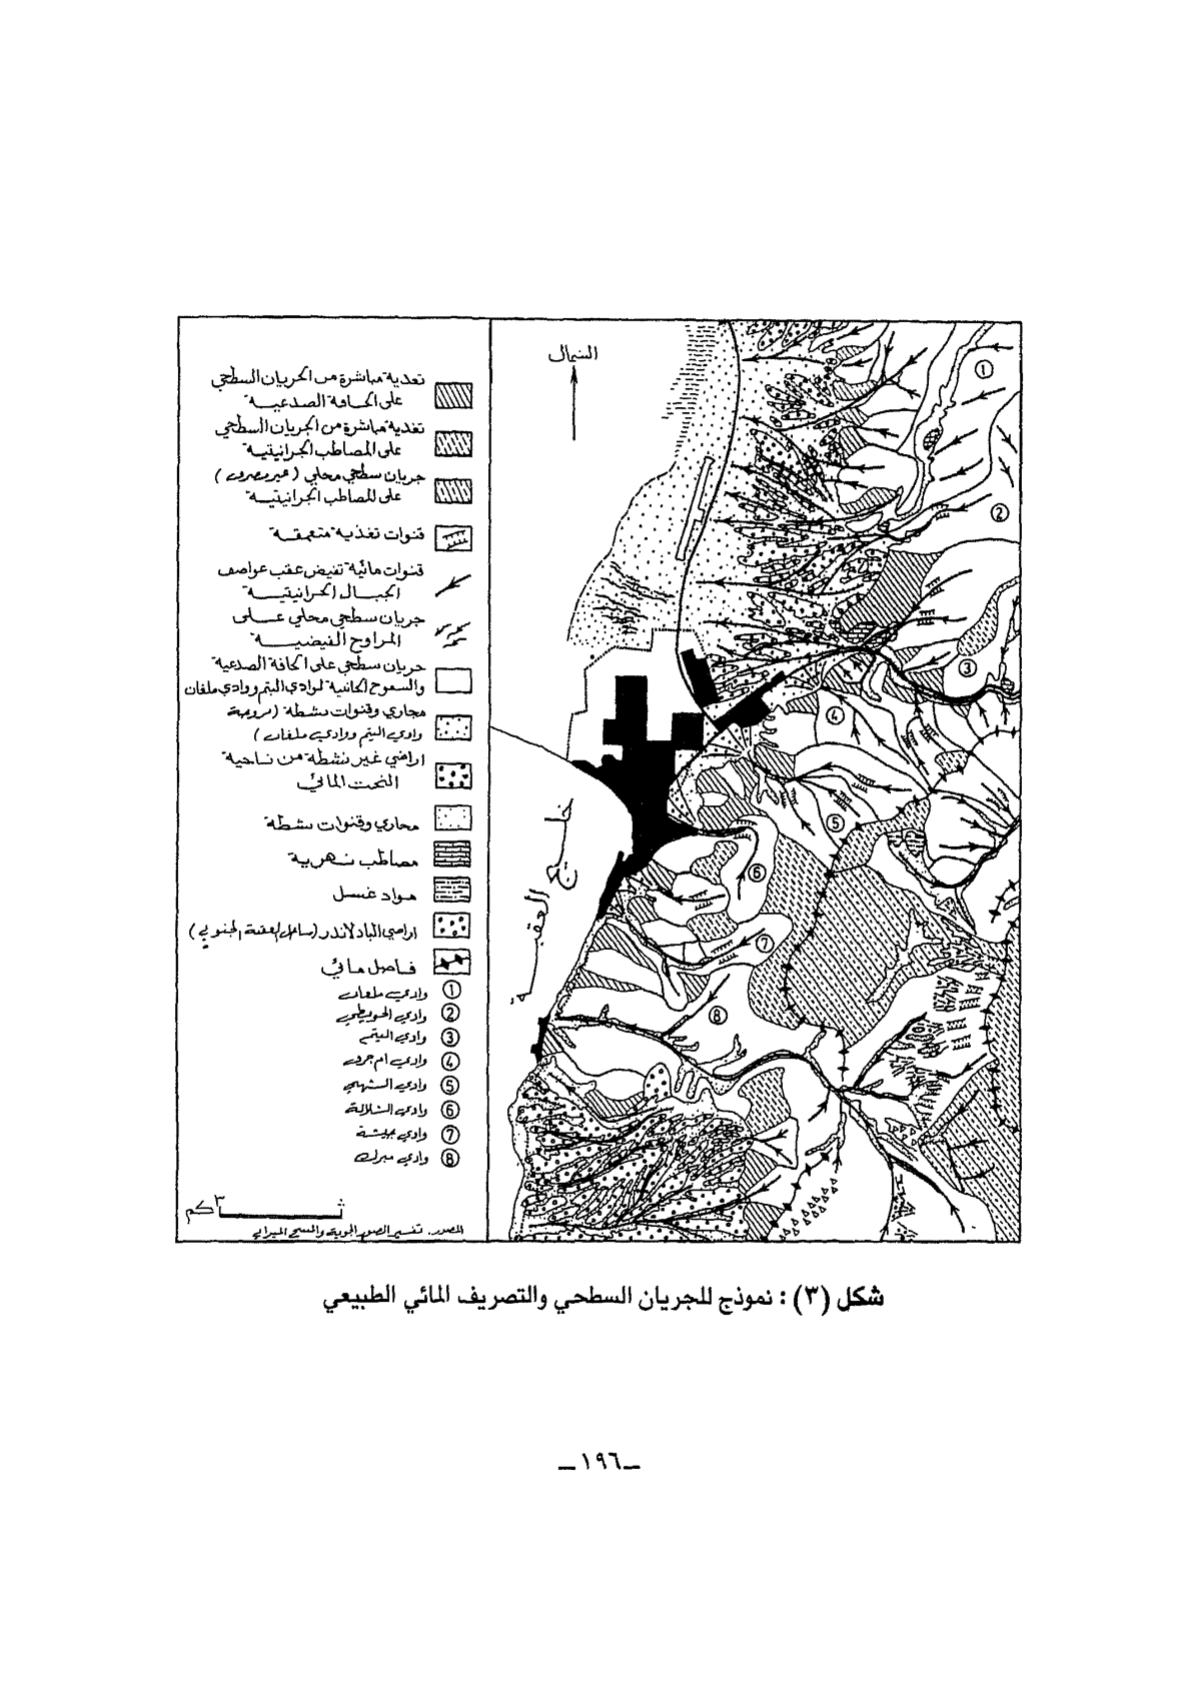 الشمال
تغدية مباشرة من الجريان السطحي
على الحافة الصدعية
تغذية مباشرة من الجريان السطحي
على المصاطب الجرانيتية
جريان سطحي محلي (غير مصرف)
على المصاطب الجرانيتية
قنوات تغذية متعمقة
قنوات مائية تفيض عقب عواصف
الجبال الجرانيتية
جريان سطحي محلي على
المراوح الفيضية
جريان سطحي على الحافة الصدعية
والسفوح الجانبية لوادي اليتم ووادي ملغان
مجاري وقنوات نشطة (مروحة
وادي اليتم ووادي ملغان)
اراضي غير نشطة من ناحية
النحت المائي
مجاري وقنوات نشطة
مصاطب نهرية
مواد غسل
اراضي البادلاندز (ساحل العقبة الجنوبي)
فاصل مائي
① وادي ملغان
② وادي الحويطي
③ وادي اليتم
④ وادي ام جرف
⑤ وادي الشهبي
⑥ وادي الشلالة
⑦ وادي جيشة
⑧ وادي مبرك
خليج العقبة
① ② ③ ④ ⑤ ⑥ ⑦ ⑧
٣ كم
المصدر: تفسير الصور الجوية والمسح الميداني
شكل (٣) : نموذج للجريان السطحي والتصريف المائي الطبيعي
ــ ١٩٦ ــ